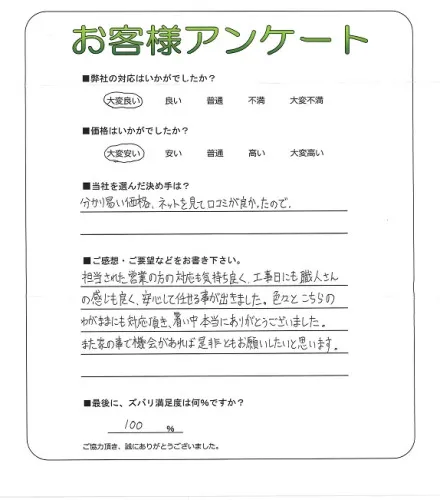 お客様アンケート
■弊社の対応はいかがでしたか?
大変良い 良い 普通 不満 大変不満
■価格はいかがでしたか?
大変安い 安い 普通 高い 大変高い
■当社を選んだ決め手は?
分かり易い価格、ネットを見て口コミが良かったので。
■ご感想・ご要望などをお書き下さい。
担当された営業の方の対応も気持ち良く、工事日にも職人さん
の感じも良く、安心して任せる事が出きました。色々と こちらの
わがままにも対応頂き、暑い中本当にありがとうございました。
また家の事で機会があれば是非ともお願いしたいと思います。
■最後に、ズバリ満足度は何%ですか?
100 %
ご協力頂き、誠にありがとうございました。